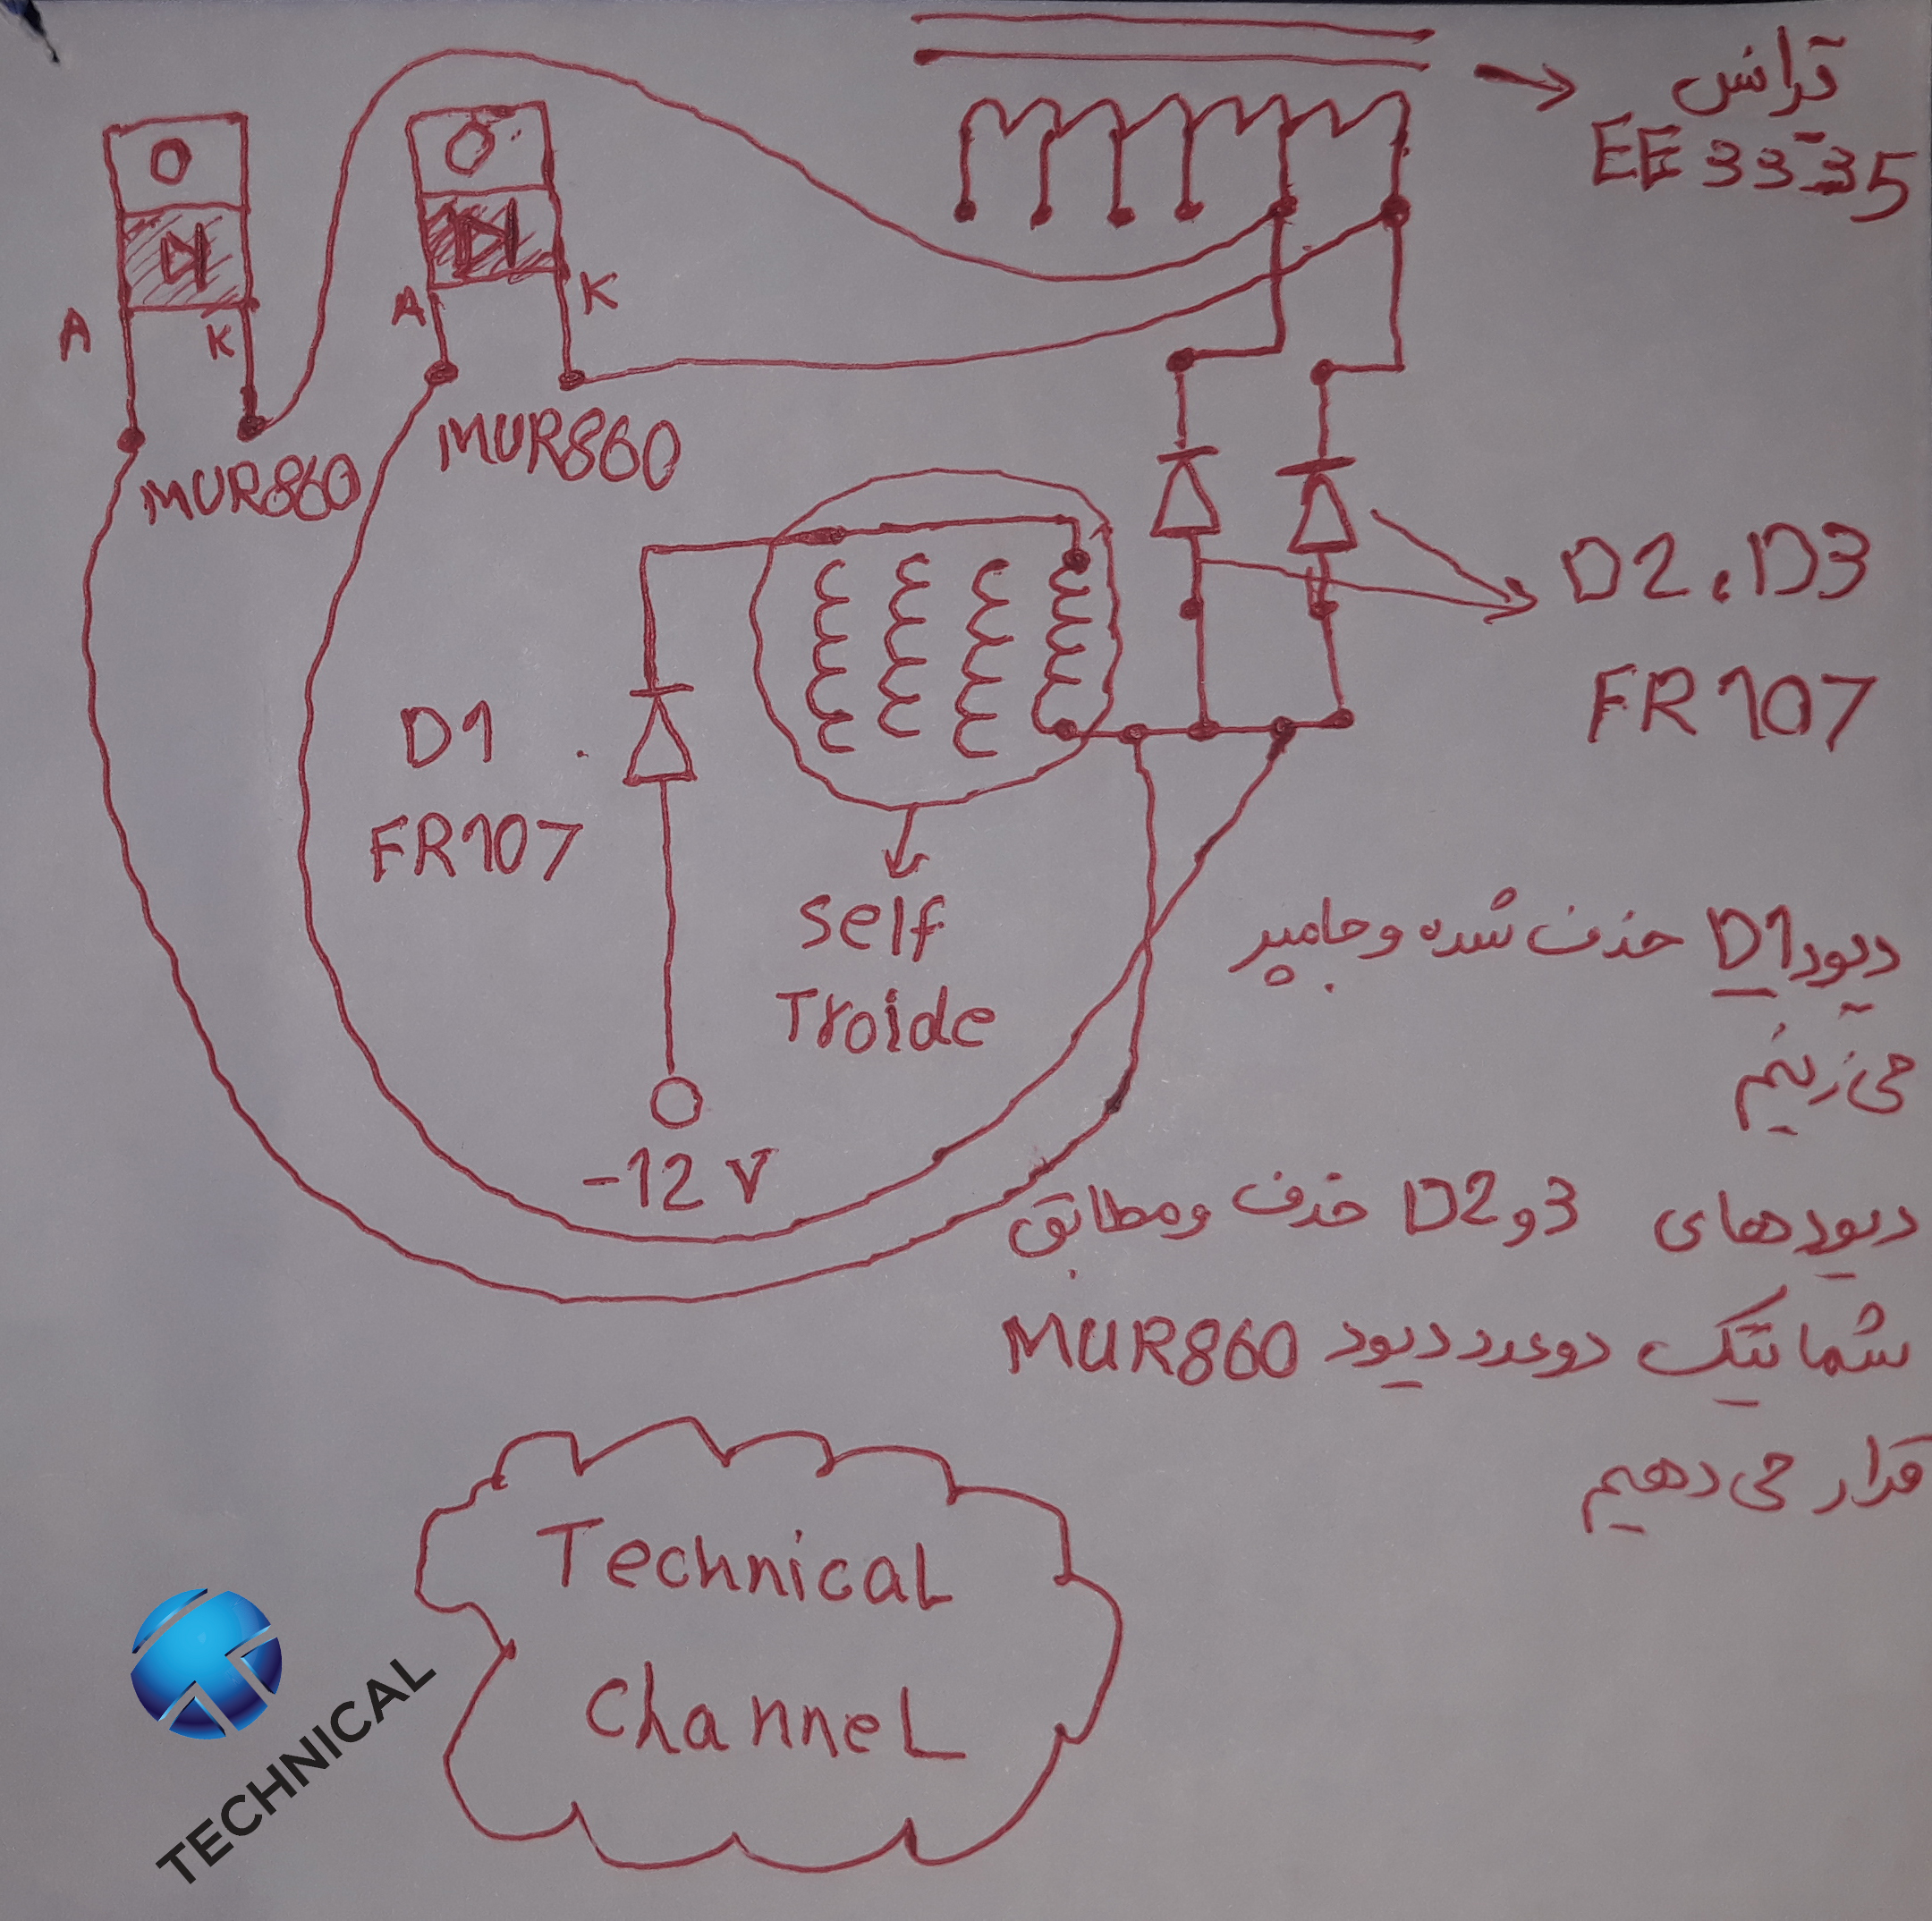 ترانس
EE 33-35
A
K
MUR860
A
K
MUR860
D2، D3
FR107
D1
FR107
self
Troide
-12 V
دیود D1 حذف شده و جامپر
می زنیم
دیودهای D2 و 3 حذف و مطابق
شماتیک دو عدد دیود MUR860
قرار می دهیم
Technical
channel
TECHNICAL